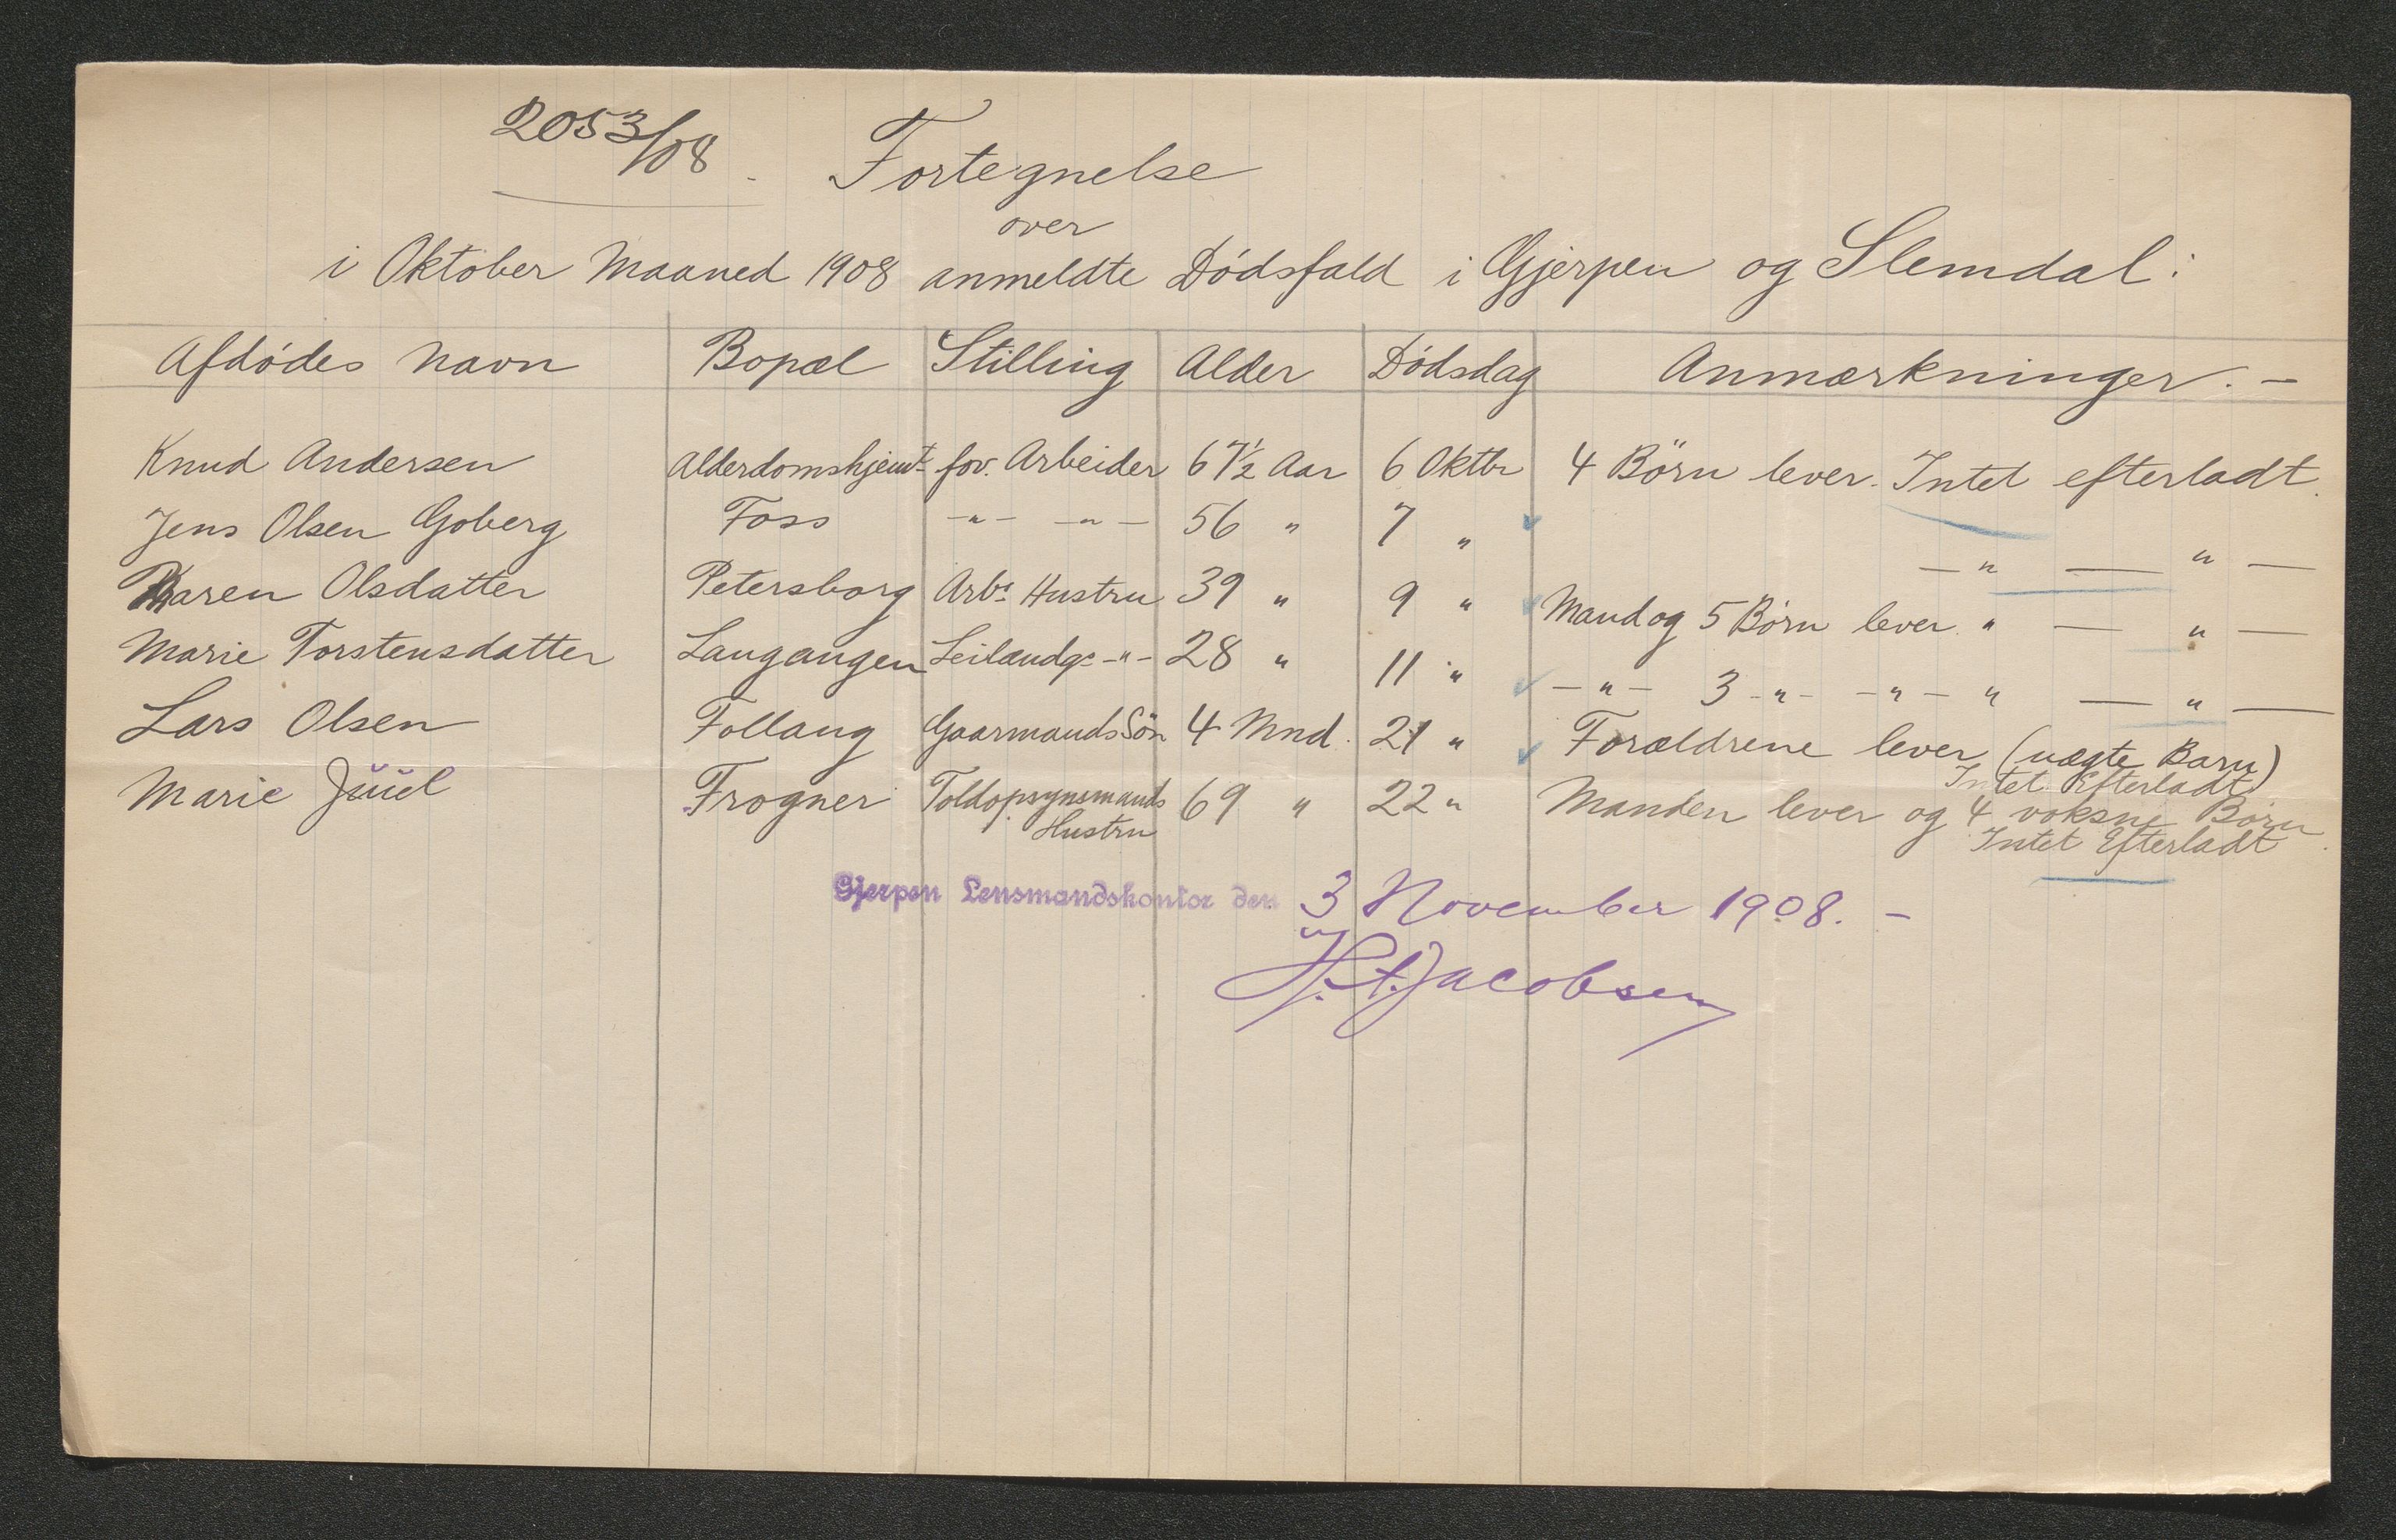 2053/08.
Fortegnelse
over
i Oktober Maaned 1908 anmeldte Dödsfald i Gjerpen og Slemdal:
Afdödes Navn Bopæl Stilling Alder Dödsdag Anmærkninger. -
Knud Andersen Alderdomshjemt for. Arbeider 67½ Aar 6 Oktbr 4 Börn lever. Intet efterladt.
Jens Olsen Goberg Foss -"- -"- 56 " 7 " -"- — " —
Karen Olsdatter Petersborg Arbs Hustru 39 " 9 " Mand og 5 Börn lever " — " —
Marie Torstensdatter Langangen Leilændgs -"- 28 " 11 " -"- 3 -"- -"- " — " —
Lars Olsen Follaug Gaarmands Sön 4 Mnd. 21 " Forældrene lever (uægte Barn)
Intet Efterladt
Marie Juul Frogner Toldopsynsmands 69 " 22 " Manden lever og 4 voksne Börn
Hustru Intet Efterladt.
Gjerpen Lensmandskontor den 3 November 1908. -
Jacobsen